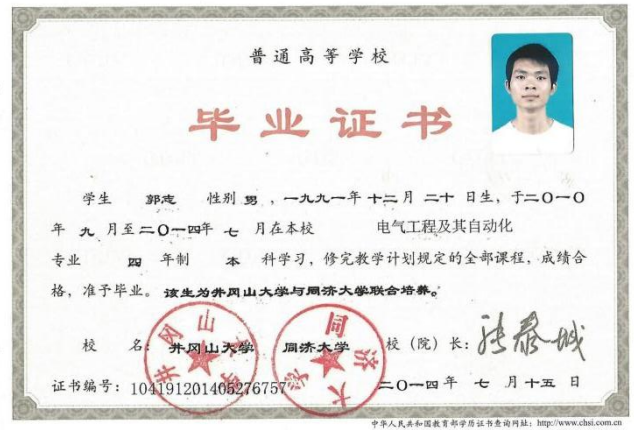 普通高等学校
毕业证书
学生 郭志 性别 男 ，一九九一年 十二月 二十 日生，于二〇一〇
年 九 月至二〇一四年 七 月在本校 电气工程及其自动化
专业 四 年制 本 科学习，修完教学计划规定的全部课程，成绩合
格，准予毕业。 该生为井冈山大学与同济大学联合培养。
校 名： 井冈山大学 同济大学 校（院）长：张泰城
证书编号：104191201405276757 二〇一四年 七 月十五 日
中华人民共和国教育部学历证书查询网址：http://www.chsi.com.cn